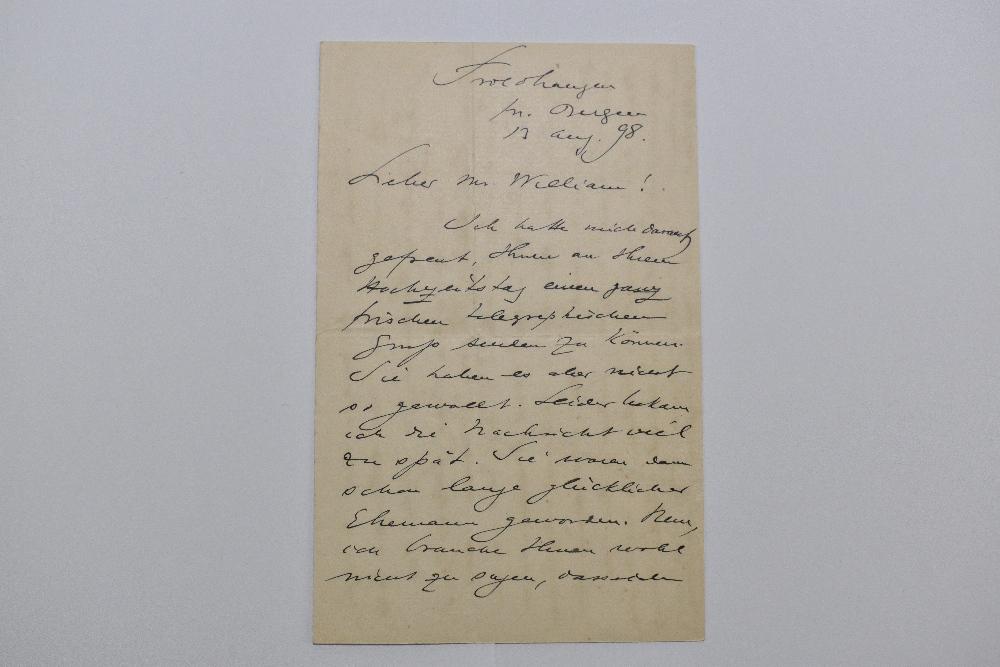 Troldhaugen
pr. Bergen
13 Aug. 98.
Lieber Mr. William!
Ich hatte mich darauf
gefreut, Ihnen an Ihrem
Hochzeitstag einen ganz
frischen telegraphischen
Gruß senden zu können.
Sie haben es aber nicht
so gewollt. Leider bekam
ich die Nachricht viel
zu spät. Sie waren dann
schon lange glücklicher
Ehemann geworden. Nun,
ich brauche Ihnen wohl
nicht zu sagen, dass ich